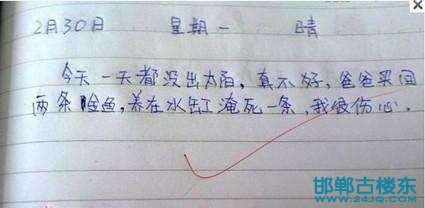 2月30日 星期一 晴
今天一天都没出太阳,真不好,爸爸买回
两条金鱼,养在水缸淹死一条,我很伤心。
邯郸古楼东
www.24JQ.com